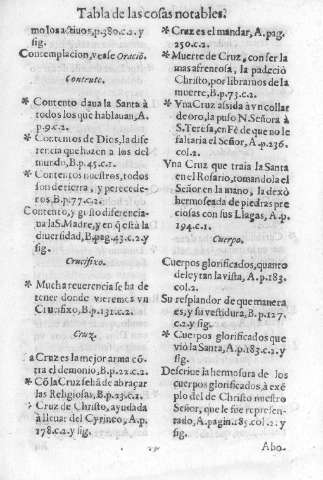 Tabla de las cosas notables.
mo los actiuos, p.380.c.2. y
sig.
Contemplacion, vease Oraciõ.
Contento.
* Contento daua la Santa à
todos los que hablauan, A.
p.9.c.2.
* Contentos de Dios, la dife
rencia que hazen a los del
mundo, B.p.45.c.1.
* Contentos nuestros, todos
son de tierra, y perecede-
ros, B.p.77.c.2.
Contento, y gusto diferencia-
ua la S. Madre, y en q̃ està la
diuersidad, B.pag.43.c.2.y
sig.
Crucifixo.
* Mucha reuerencia se ha de
tener donde vieremos vn
Crucifixo, B.p.131.c.2.
Cruz.
a Cruz es la mejor arma cõ-
tra el demonio, B.p.22.c.2.
* Cõ la Cruz se hã de abraçar
las Religiosas, B.p.23.c.1.
* Cruz de Christo, ayudada
à lleuar del Cyrineo, A.p.
178.c.2. y sig.
* Cruz es el mandar, A. pag.
250.c.2.
* Muerte de Cruz, con ser la
mas afrentosa, la padeciò
Christo, por librarnos de la
muerte, B.p.73.c.2.
* Vna Cruz assida à vn collar
de oro, la puso N. Señora à
S. Teresa, en Fè de que no le
faltaria el Señor, A.p.236.
col.2.
Vna Cruz que traia la Santa
en el Rosario, tomandola el
Señor en la mano, la dexò
hermoseada de piedras pre
ciosas con sus Llagas, A.p.
194.c.1.
Cuerpo.
Cuerpos glorificados, quanto
deleytan la vista, A.p.183.
col.2.
Su resplandor de que manera
es, y su vestidura, B.p.127.
c.2.y sig.
* Cuerpos glorificados que
viò la Santa, A.p.183.c.2.y
sig.
Descriue la hermosura de los
cuerpos glorificados, à exẽ
plo del de Christo nuestro
Señor, que le fue represen-
tado, A.pagin.185.col.2. y
sig.
Abo-